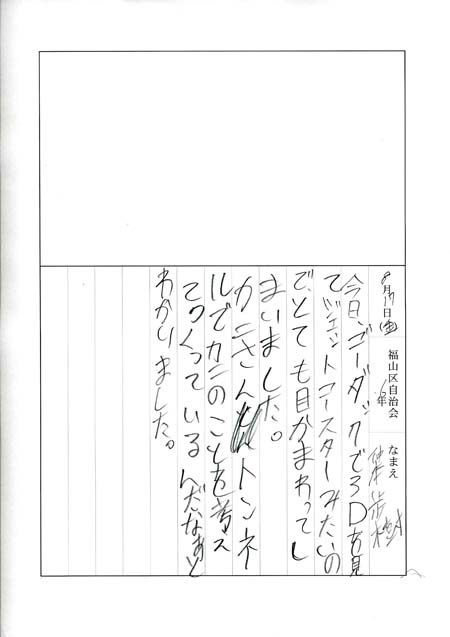 8月17日(金) 福山区自治会 6年 なまえ
今日、ゴーダックで3Dを見
てジェットコースターみたいの
で、とても目がまわってし
まいました。
カニさんトンネ
ルでカニのことを考え
てつくっているんだなあと
わかりました。